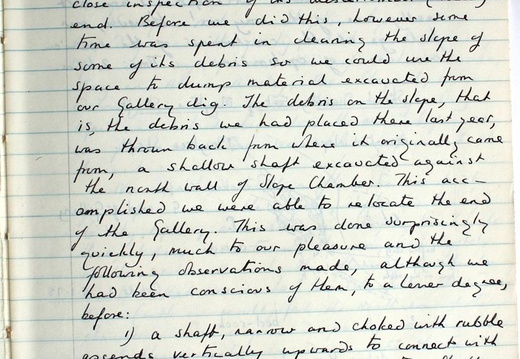 close inspection of its
end. Before we did this, however some
time was spent in clearing the slope of
some of its debris so we could use the
space to dump material excavated from
our Gallery dig. The debris on the slope, that
is, the debris we had placed there last year,
was thrown back from where it originally came
from, a shallow shaft excavated against
the north wall of Slope Chamber. This acc-
omplished we were able to relocate the end
of the Gallery. This was done surprisingly
quickly, much to our pleasure and the
following observations made, although we
had been conscious of them, to a lesser degree,
before:
1) a shaft, narrow and choked with rubble
ascends vertically upwards to connect with